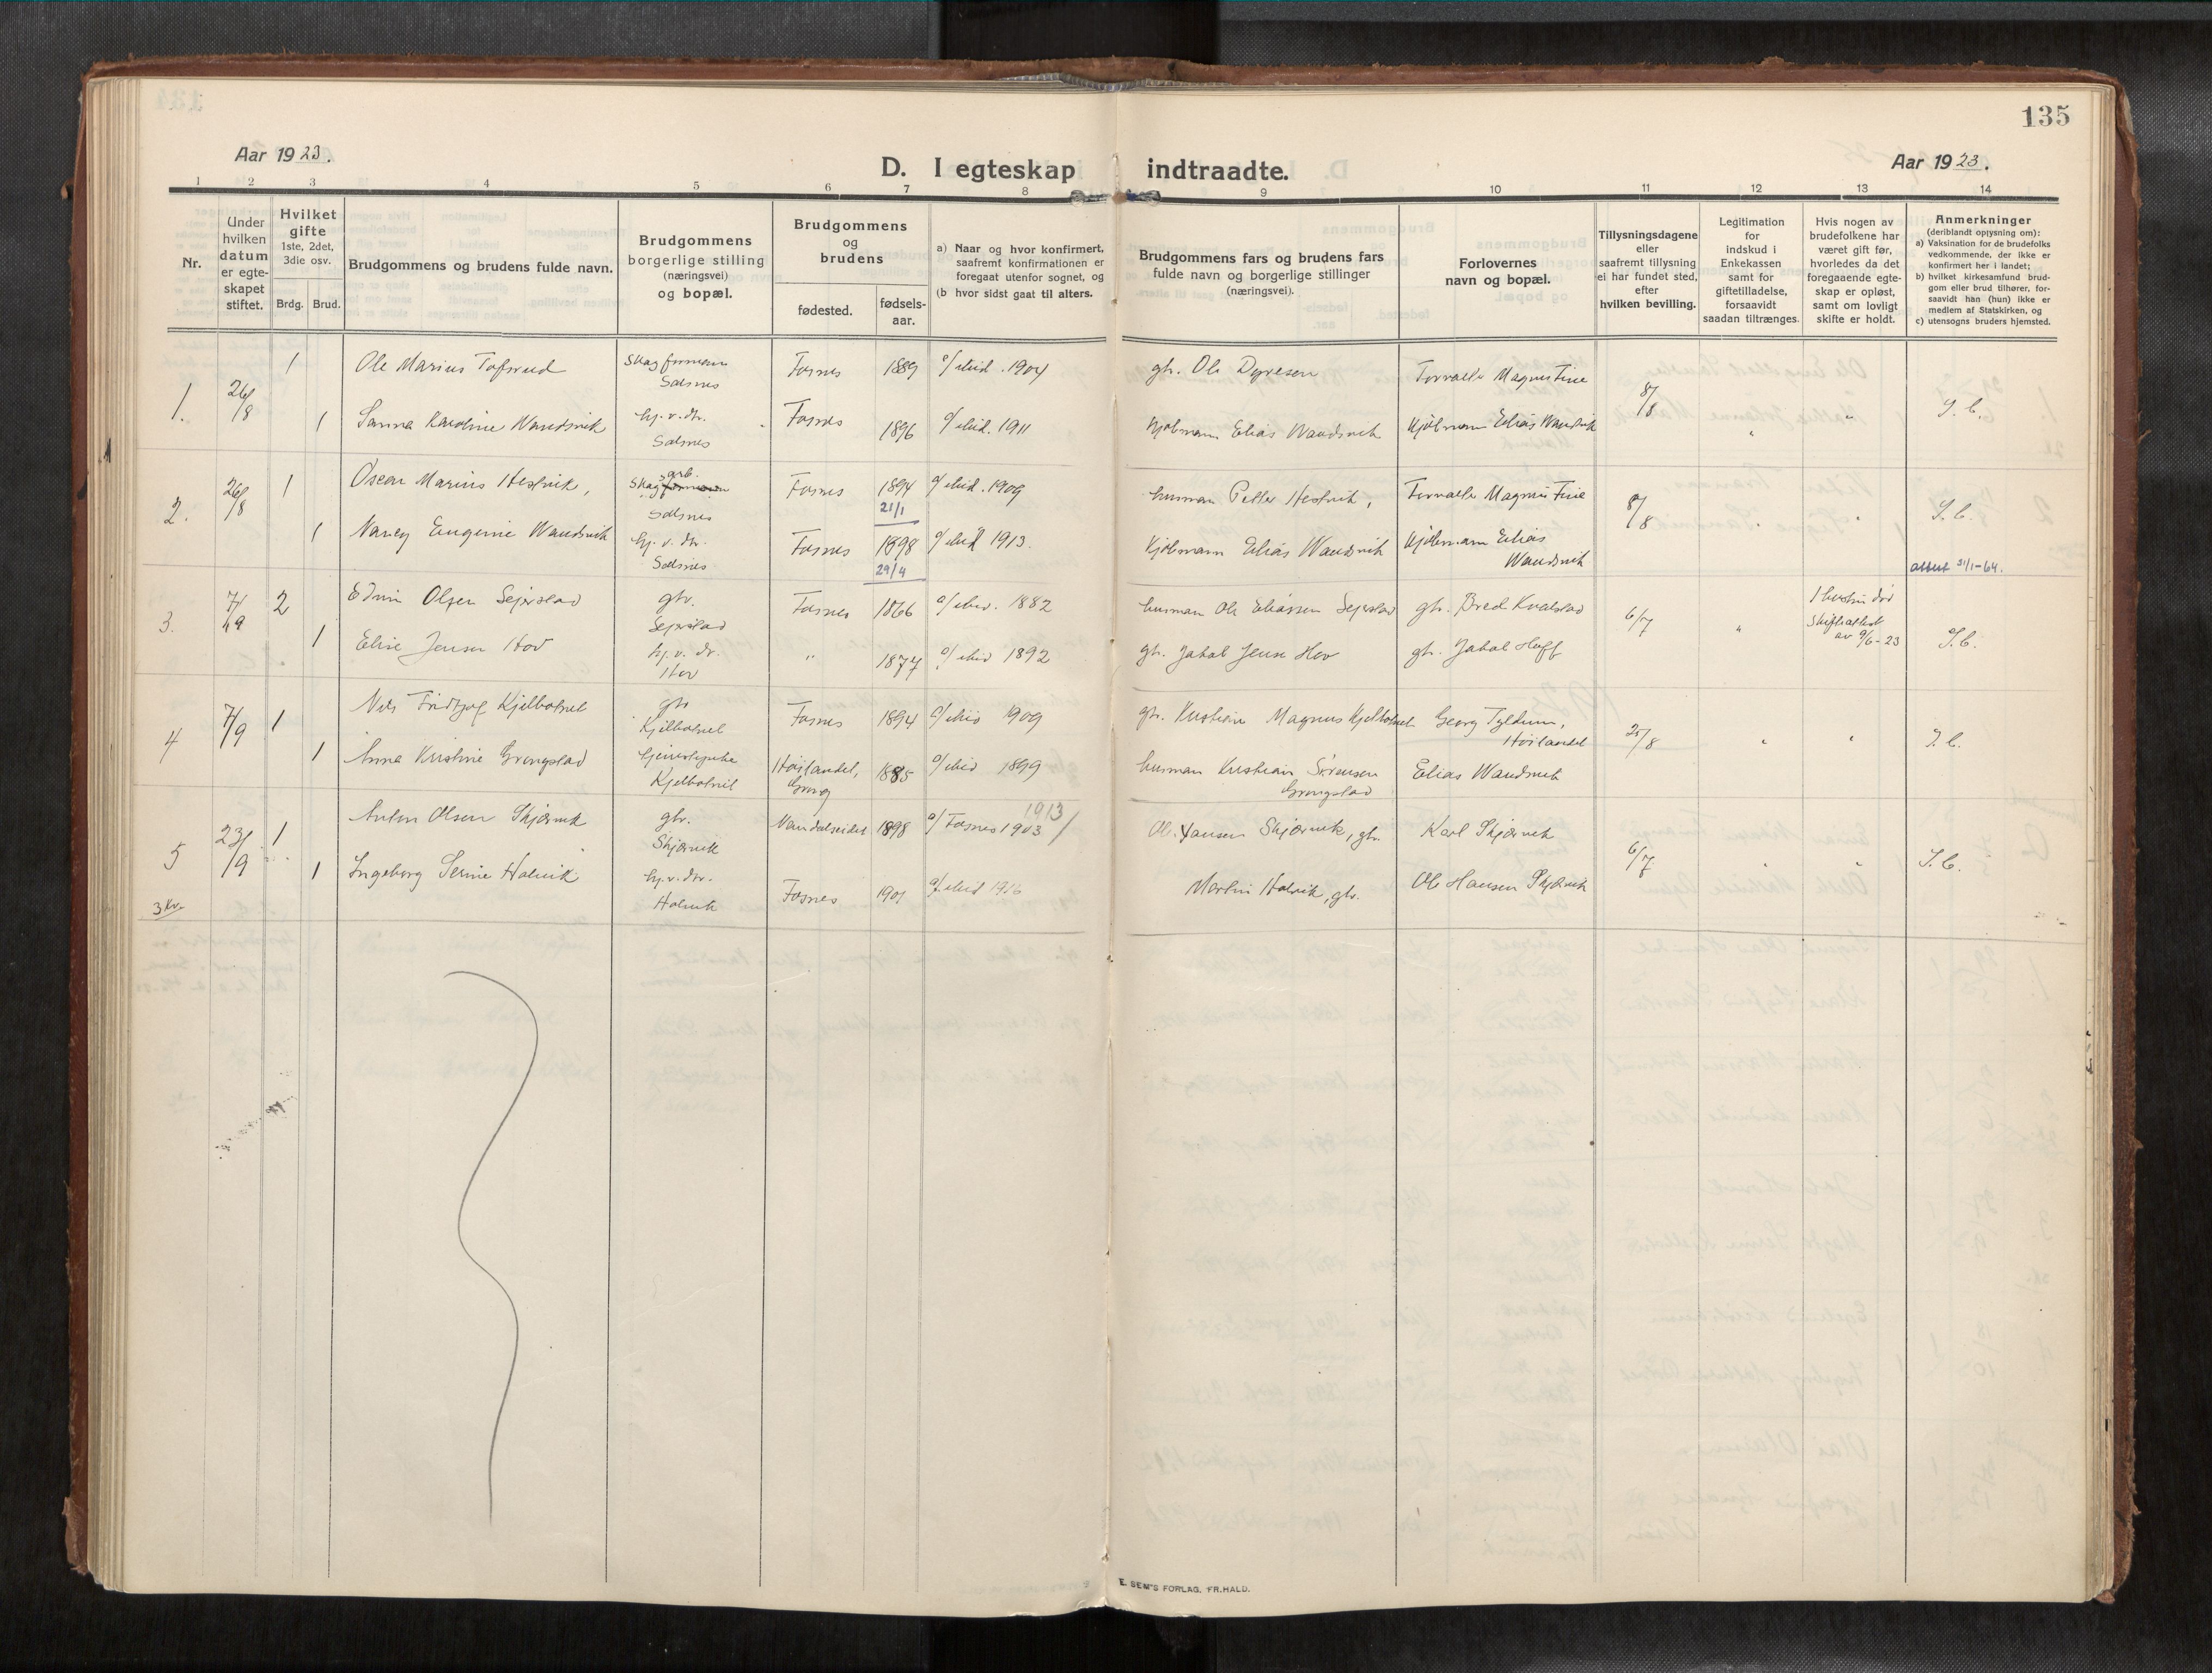 135
Aar 1923.
D. I egteskap indtraadte.
Aar 1923.
1 2 3 4 5 6 7 8 9 10 11 12 13 14
Nr.
Under hvilken datum er egteskapet stiftet.
Hvilket gifte 1ste, 2det, 3die osv.
Brdg. Brud.
Brudgommens og brudens fulde navn.
Brudgommens borgerlige stilling (næringsvei) og bopæl.
Brudgommens og brudens
fødested. fødsels-aar.
a) Naar og hvor konfirmert, saafremt konfirmationen er foregaat utenfor sognet, og
(b hvor sidst gaat til alters.
Brudgommens fars og brudens fars fulde navn og borgerlige stillinger (næringsvei).
Forlovernes navn og bopæl.
Tillysningsdagene eller saafremt tillysning ei har fundet sted, efter hvilken bevilling.
Legitimation for indskud i Enkekassen samt for giftetilladelse, forsaavidt saadan tiltrænges.
Hvis nogen av brudefolkene har været gift før, hvorledes da det foregaaende egteskap er opløst, samt om lovligt skifte er holdt.
Anmerkninger (deriblandt oplysning om):
a) Vaksination for de brudefolks vedkommende, der ikke er konfirmert her i landet;
b) hvilket kirkesamfund brudgom eller brud tilhører, forsaavidt han (hun) ikke er medlem af Statskirken, og
c) utensogns bruders hjemsted.
1. 26/8 1 Ole Marius Tofsrud Skogformann Salsnes Fosnes 1889 1904 gbr. Ole Dyresen Magnus Fine 8/8
1 Sanna Karoline Wandsvik hj. v. dtr. Salsnes Fosnes 1896 1911 Kjøbmann Elias Wandsvik Kjøbmann Elias Wandsvik
2. 26/8 1 Oscar Marius Hestvik, arb. Salsnes Fosnes 1894 21/1 1909 husman Petter Hestvik, Magnus Fine 8/8
1 Nancy Eugenie Wandsvik hj. v. dtr. Salsnes Fosnes 1898 29/4 1913. Kjøbmann Elias Wandsvik Kjøbmann Elias Wandsvik
attest 31/1-64.
3. 7/9 2 Edvin Olsen Sejerstad gbr. Sejerstad Fosnes 1866 1882 husman Ole Eliassen Sejerstad gbr. 6/7 1 hustru død Skifteattest av 9/6-23
1 Elise Jensen Hov hj. v. dr. Hov " 1877 1892 gbr. Jakob Jensen Hov gbr. Jakob Hoff
4 7/9 1 Nils Fridtjof Kjelbotnet gbr Kjelbotnet Fosnes 1894 1909 gbr. Kristian Magnus Kjelbotnet Georg Tyldum, Høilandet 25/8
1 Anna Kristine Grongstad Kjelbotnet Høilandet, Grong 1885 1899 husman Kristian Sørensen Grongstad Elias Wandsvik
5 23/9 1 Anton Olsen Skjærvik gbr. Skjærvik Namdalseidet 1898 a/ Fosnes 1903/ 1913 Ole Hansen Skjærvik, gbr. Karl Skjærvik 6/7
1 Ingeborg Serine Halvik hj. v. dtr. Halvik Fosnes 1901 1916 Martin Halvik, gbr. Ole Hansen Skjærvik
3 Kv.
E. SEM'S FORLAG, FR.HALD.